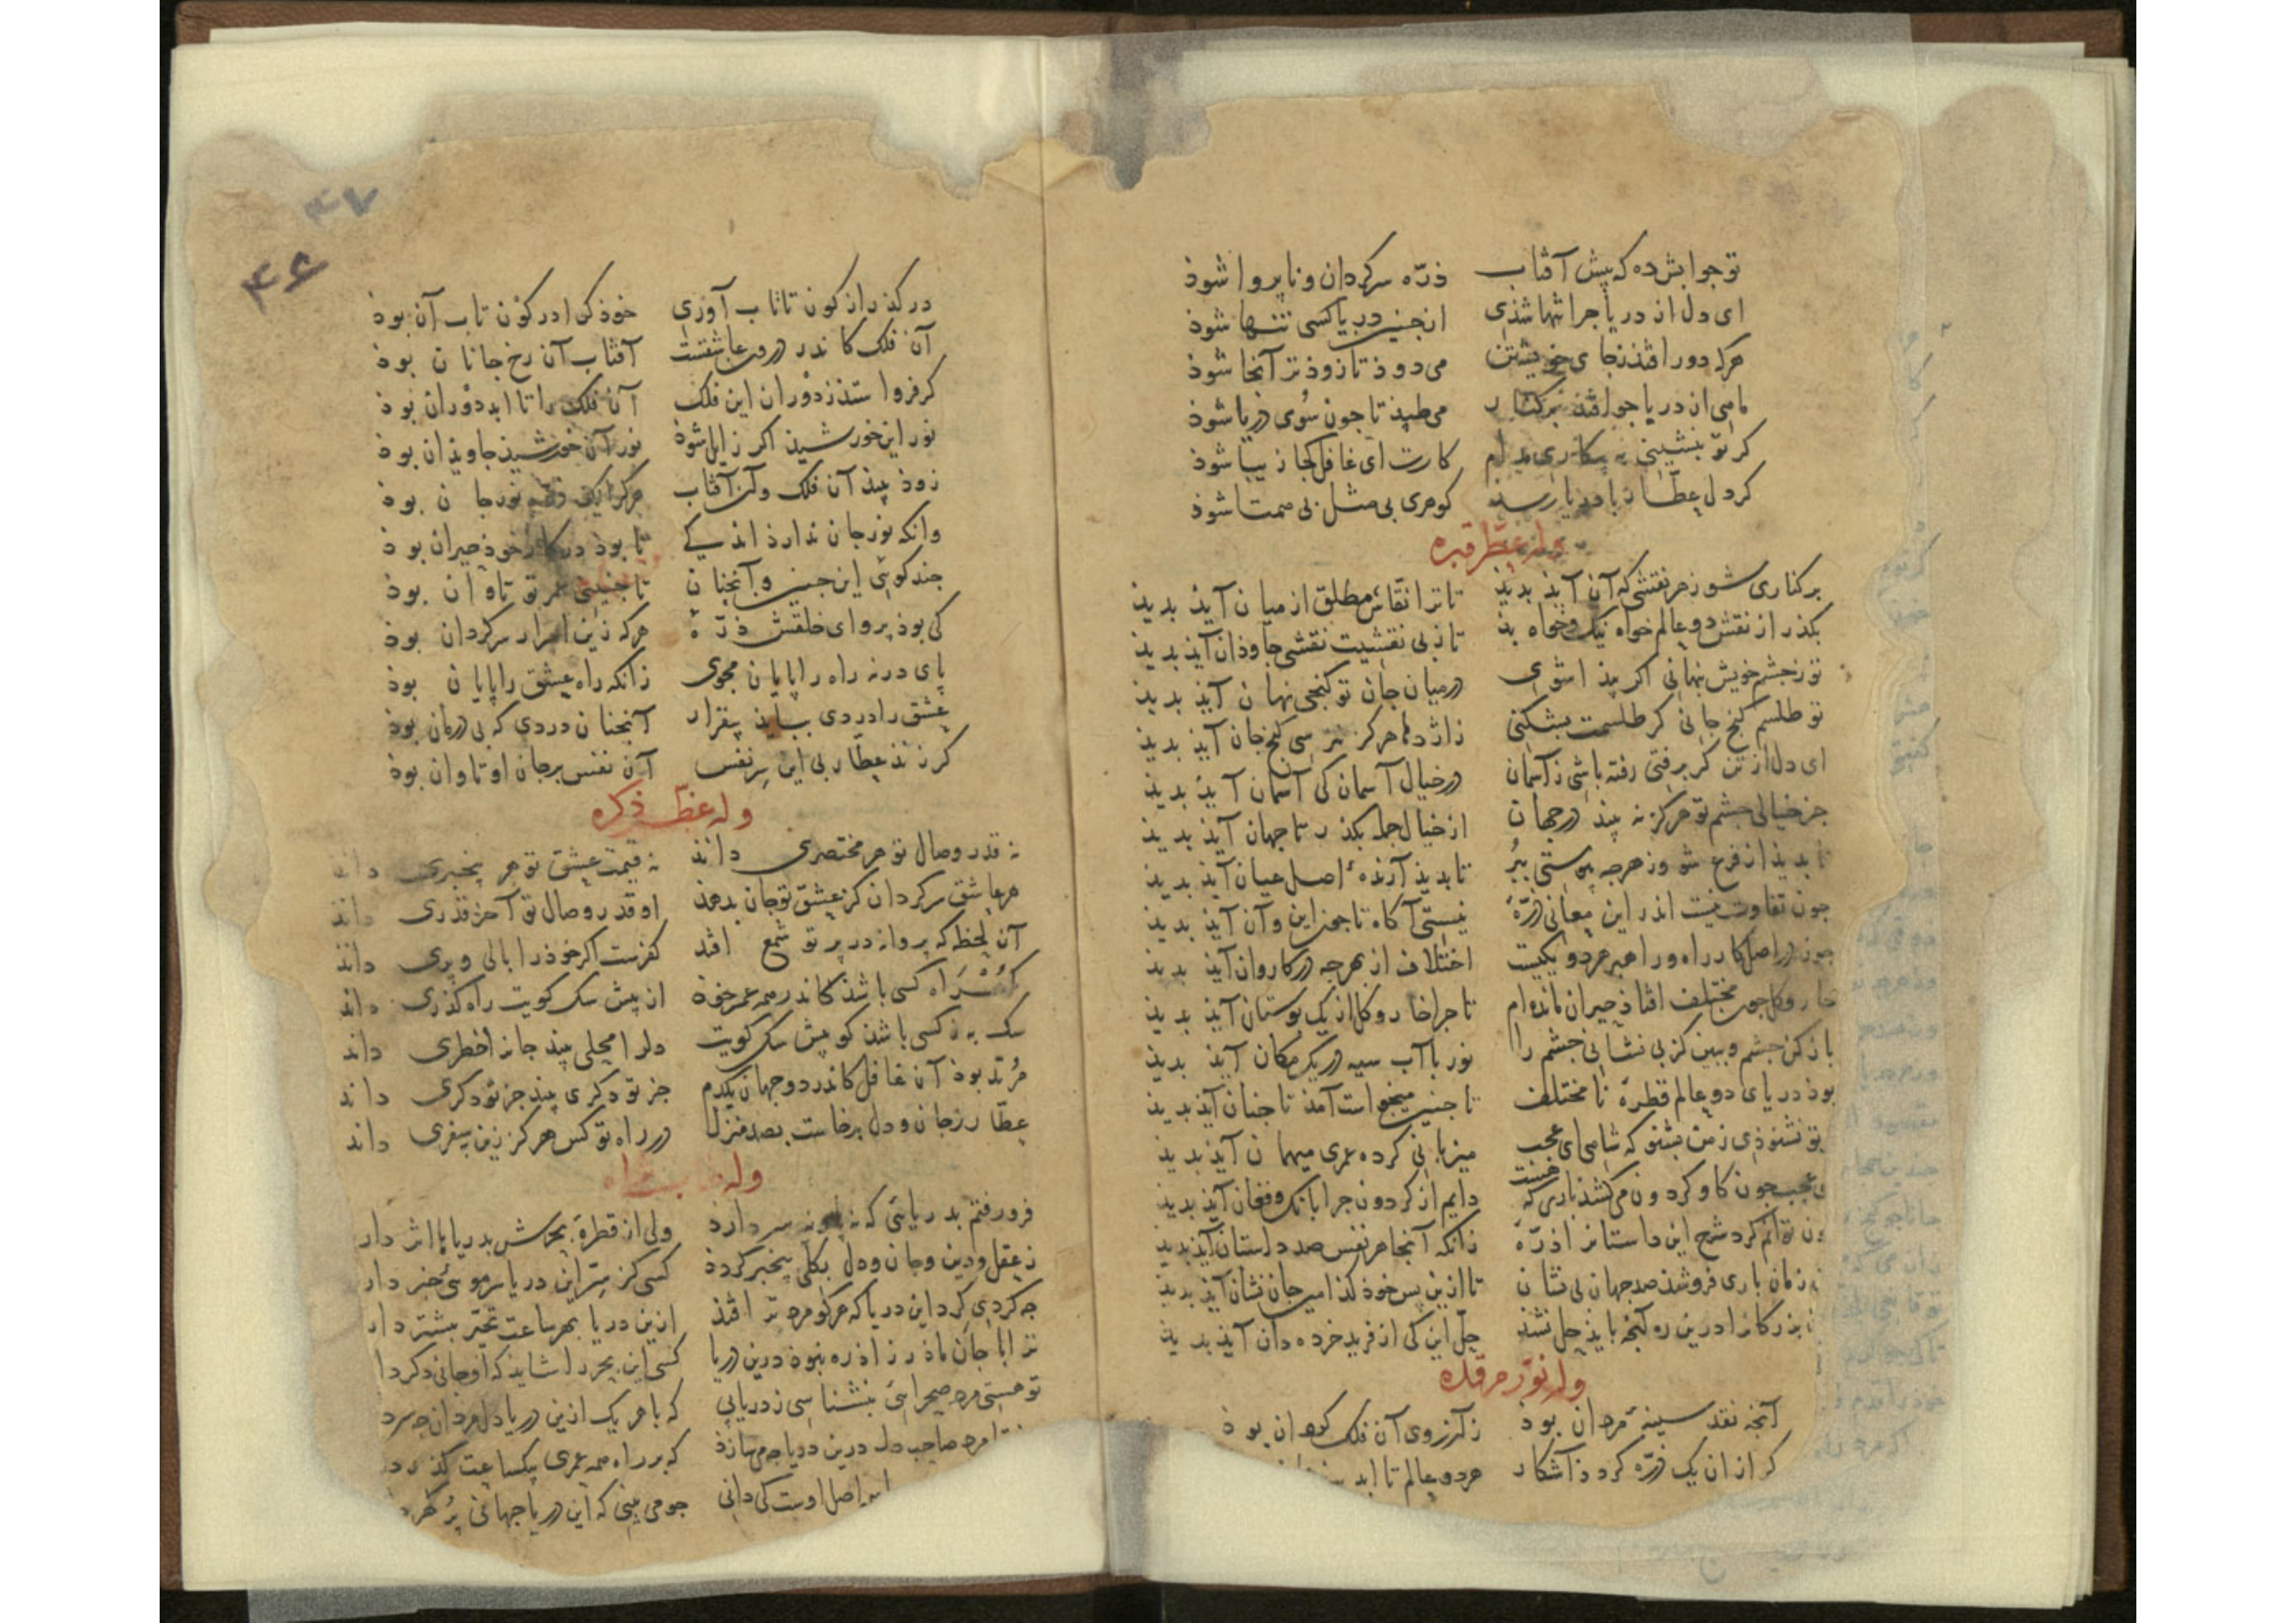 تو جوابش ده که پیش آفتاب ذره سرکردان و ناپروا شوذ
ای دل از دریا جرا تنها شذی از جنین دریا کسی تنها شوذ
هرکه دور افتذ زجای خویشتن می دوذ تا زوذتر آنجا شوذ
ماهی از دریا جو افتذ بر کنار می طپذ تا جون سوی دریا شوذ
کر تو بنشینی به بیکاری مدام کارت ای غافل کجا زیبا شوذ
کر دل عطار با دریا رسذ کوهری بی مثل بی همتا شوذ
وله عطر قبره
برکناری شو زهر نقشی که آن آیذ بدیذ تا ترا نقاش مطلق از میان آیذ بدیذ
بکذر از نقش دو عالم خواه نیک و خواه بذ تا ز بی نقشیت نقشی جاوذان آیذ بدیذ
تو زجشم خویش بنهانی اکر بیذا شوی در میان جان تو کنجی نهان آیذ بدیذ
تو طلسم کنج جانی کر طلسمت بشکنی ز اژدها هرکز نترسی کنج جان آیذ بدیذ
ای دل از تن کر برفتی رفته باشی زآسمان در خیال آسمان کی آسمان آیذ بدیذ
جز خیالی جشم تو هرکز نه بیند در جهان از خیال جمله بکذر تا جهان آیذ بدیذ
نابدیذ از فرع شو وز هرجه بیوستی ببر تا بدیذ آرنده اصل عیان آیذ بدیذ
جون تفاوت نیست اندر این معانی ذره نیستی آکاه تا جون این و آن آیذ بدیذ
جون در اصل کار راه و راهبر هر دو یکیست اختلاف از بهر جه در کاروان آیذ بدیذ
خار و کل جون مختلف افتاذ حیران مانده ام تا جرا خار و کل از یک بوستان آیذ بدیذ
باز کن جشم و ببین کز بی نشانی جشم را نور با آب سیه در یک مکان آیذ بدیذ
بوذ دریای دو عالم قطره نا مختلف تا جنین میخواست آمذ تا جنان آیذ بدیذ
تو نشنوذی زمن بشنو که شاهی ای عجب میزبانی کرده عمری میهمان آیذ بدیذ
ی عجب جون کاو کردون می کشذ باری که هست دایم از کردون جرا بانک و فغان آیذ بدیذ
ون توانم کرد شرح این داستانرا ذره زانکه آنجا هر نفس صد داستان آیذ بدیذ
زمان باری فروشذ صد جهان بی نشان تا ازین بس خوذ کذامین جان نشان آیذ بدیذ
بزرکانرا درین ره آنجه بایذ حل نشذ حل این کی از فرید خرده دان آیذ بدیذ
وله نور مرقده
آنجه نقد سینه مردان بوذ زآرزوی آن فلک کردان بوذ
کر از ان یک ذره کردذ آشکار هر دو عالم تا ابد
۴۷
۴۶
در کذر از کون تا تاب آوری خوذ کرا در کون تاب آن بوذ
آن فلک کاندر درون عاشقست آفتاب آن رخ جانان بوذ
کر فرو استذ زدوران این فلک آن فلک را تا ابد دوران بوذ
نور این خورشیذ اکر زایل شوذ نور آن خورشیذ جاویذان بوذ
زوذ بیند آن فلک وآن آفتاب هرکرا یک ذره نور جان بوذ
وانکه نور جان نداردذ اندکی تا بوذ در کار خوذ حیران بوذ
جند کوئی این جنین و آنجنان تا جنینی عمر تو تاوان بوذ
کی بوذ پروای خلقش ذره هرکه زین اسرار سرکردان بوذ
پای درنه راه را پایان مجوی زانکه راه عشق را پایان بوذ
عشق را دردی ببایذ بیقرار آنجنان دردی که بی درمان بوذ
کر زند عطار بی این سر نفس آن نفس بر جان او تاوان بوذ
وله عظّم ذکره
نه قدر وصال تو هر مختصری داند نه قیمت عشق تو هر بیخبری داند
هر عاشق سرکردان کز عشق تو جان بدهذ او قدر وصال تو آخر قدری داند
آن لحظه که پروانه در پرتو شمع افتد کفرست اکر خوذ را بالی و پری داند
سک به ز کسی باشذ کو پیش سک کویت دل را محلی بیند جانرا خطری داند
مرتد بوذ آن غافل کاندر دو جهان یکدم جز تو دکری بیند جز تو دکری داند
عطار زجان و دل برخاست بصد منزل در راه تو کس هرکز زین به سفری داند
فرو رفتم بدریائی که نه پای و نه سر دارد ولی از قطره بحرش بدریاها اثر دار
زعقل و دین و جان و دل بکلی بیخبر کردذ کسی کز سر این دریا سرموئی خبر دار
جه کردی کرد این دریا که هرکو مرد تر افتذ ازین دریا بهر ساعت تحیر بیشتر دار
ترا با جان ماذر زاذ ره نبوذ درین دریا کسی این بحر را شایذ که او جانی دکر دا
تو هستی مرد صحرائی بنشناسی ز دریایی که با هر یک ازین دریا دل مردان جه سر د
مرد صاحب دل درین دریا که بر راه همه عمری بیکساعت کذر د
اصل اوست کی دانی جو می بینی که این دریا جهانی پر کهر د